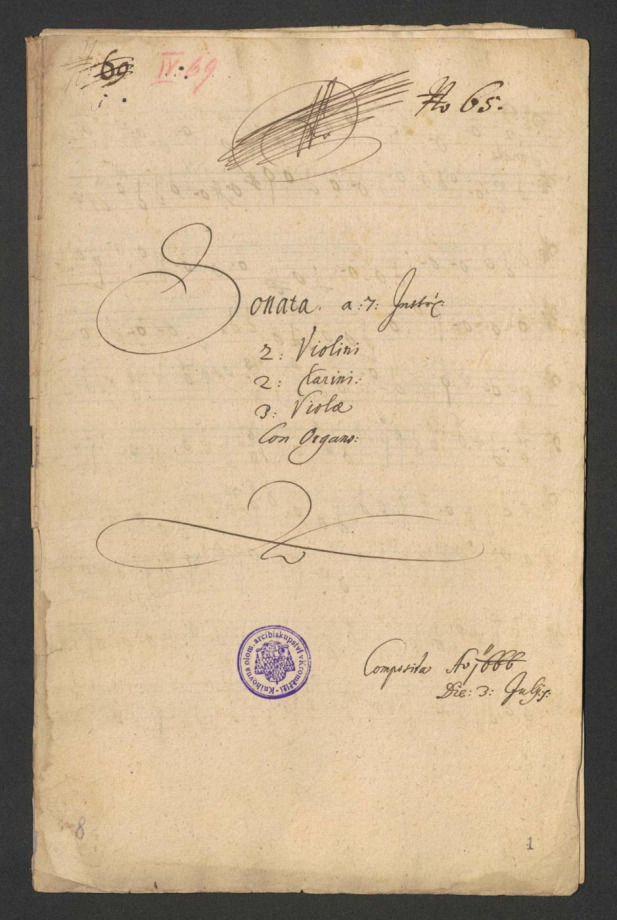 69 IV. 69
No 65.
Sonata. a: 7: Instr:
2: Violini
2: Clarini:
3: Violæ
Con Organo:
Knihovna olom. arcibiskupství v Kroměříži
Composita Ao 1666
Die: 3: Julij:
8
1